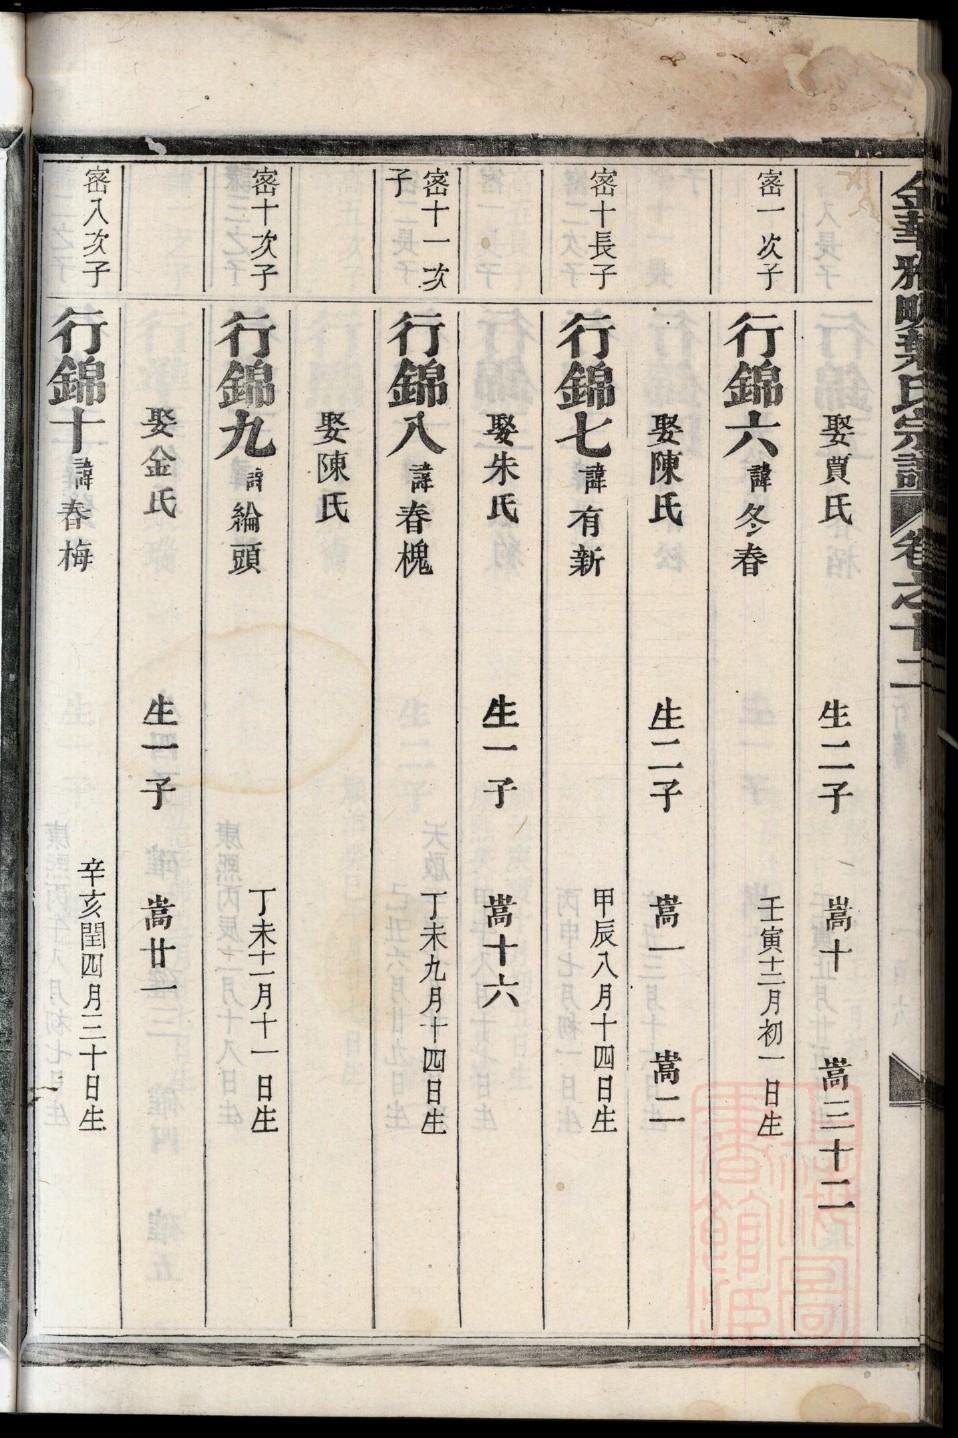 金華雅畈葉氏宗譜 卷之十二
娶賈氏 生二子 嵩十 嵩三十二
密一次子
行錦六 諱冬春 壬寅十二月初一日生
娶陳氏 生二子 嵩一 嵩二
密十長子
行錦七 諱有新 甲辰八月十四日生
娶朱氏 生一子 嵩十六
密十一次子
行錦八 諱春槐 丁未九月十四日生
娶陳氏
密十次子
行錦九 諱綸頭 丁未十一月十一日生
娶金氏 生一子 嵩廿一
密八次子
行錦十 諱春梅 辛亥閏四月三十日生
上海圖書館藏